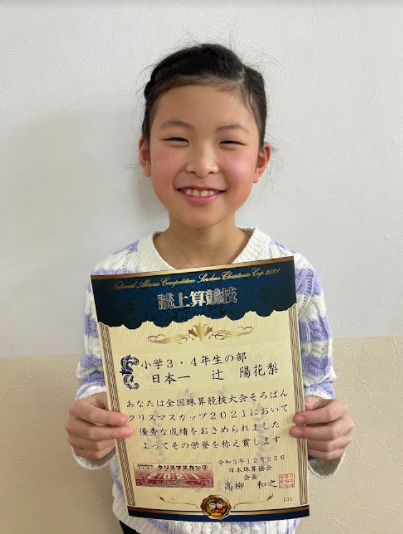 National Abacus Competition Soroban Christmas Cup 2021
読上算競技
小学3・4年生の部
日本一 辻 陽花梨
あなたは全国珠算競技大会そろばん
クリスマスカップ2021において
優秀な成績をおさめられました
よってその栄誉を称え賞します
令和3年12月25日
日本珠算協会
会長
高柳 和之
クリスマスカップ